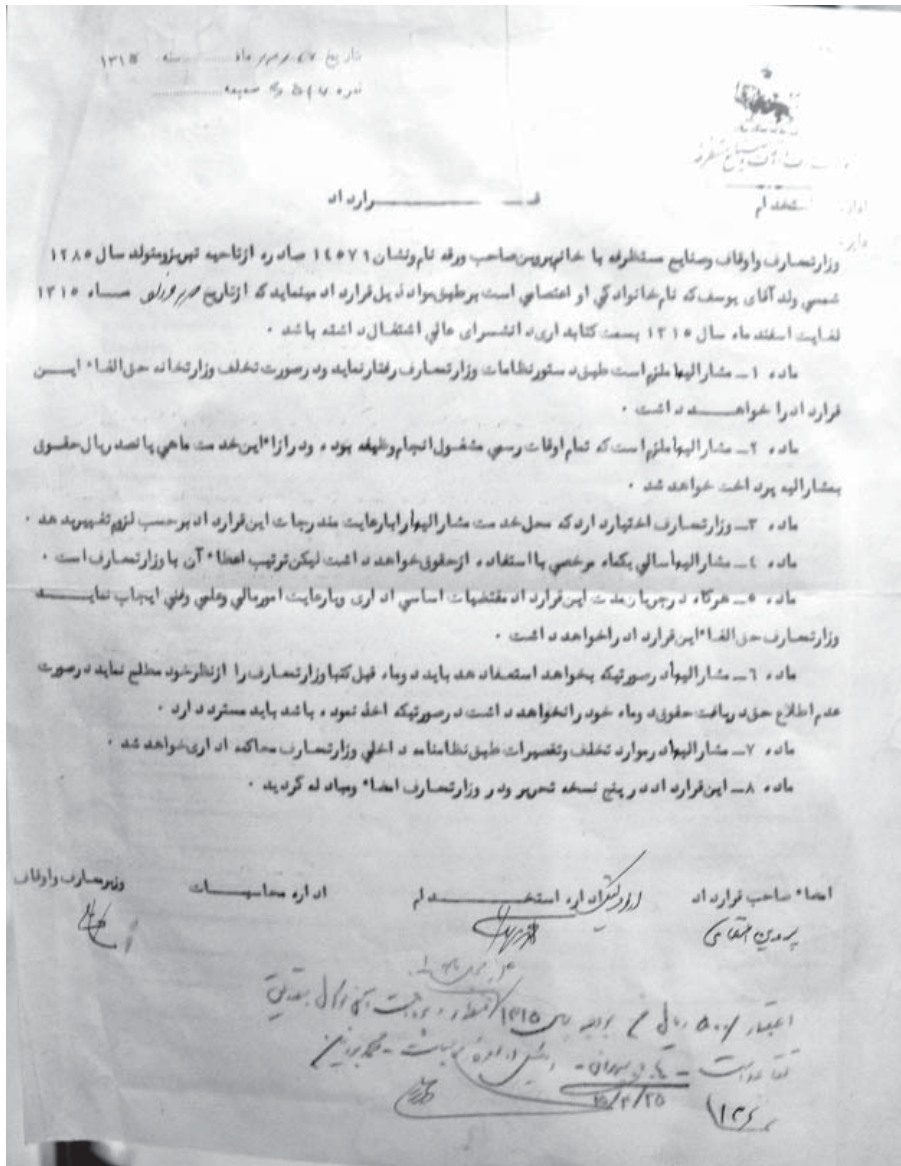 تاریخ ماه سنه ۱۳۱۵
نمره ضمیمه
صنایع مستظرفه
استخدام
قـــــرارداد
وزارتمعارف واوقاف وصنایع مستظرفه با خانم پروین صاحب ورقه نام ونشان ۱٤۵۷٦ صادره ازناحیه تبریزومتولد سال ۱۲۸۵
شمسي ولد آقای یوسف که نام خانوادگي او اعتصامي است برطبق مواد ذیل قرارداد مینماید که ازتاریخ مـــاه ۱۳۱۵
لغایت اسفند ماه سال ۱۳۱۵ بسمت کتابداری دانشسرای عالي اشتغال داشته باشد ۰
ماده ۱ـ مشارالیها ملزم است طبق دستورنظامات وزارتمعارف رفتار نماید ودرصورت تخلف وزارتخانه حق الغاء ایـــن
قرارداد را خواهـــد داشت ۰
ماده ۲ـ مشارالیها ملزم است که تمام اوقات رسمي مشغول انجام وظیفه بوده ودرازاء این خدمت ماهي پانصد ریال حقوق
بمشارالیه پرداخت خواهد شد ۰
ماده ۳ـ وزارتمعارف اختیار دارد که محل خدمت مشارالیها رابارعایت مندرجات این قرارداد برحسب لزوم تغییربدهد ۰
ماده ٤ـ مشارالیها سالي یکماه مرخصي با استفاده ازحقوق خواهد داشت لیکن ترتیب اعطاء آن با وزارتمعارف است ۰
ماده ۵ـ هرگاه درجریان مدت این قرارداد مقتضیات اساسي اداری ویارعایت امورمالي وعلمي وفني ایجاب نمایـــد
وزارتمعارف حق الغاء این قرارداد را خواهد داشت ۰
ماده ٦ـ مشارالیها درصورتیکه بخواهد استعفا دهد باید دوماه قبل کتبا وزارتمعارف را ازنظرخود مطلع نماید درصورت
عدم اطلاع حق دریافت حقوق دوماه خود رانخواهد داشت درصورتیکه اخذ نموده باشد باید مسترد دارد ۰
ماده ۷ـ مشارالیها درموارد تخلف وتقصیرات طبق نظامنامه داخلي وزارتمعارف محاکمه اداری خواهد شد ۰
ماده ۸ـ این قرارداد در پنج نسخه تحریر ودر وزارتمعارف امضاء ومبادله گردید ۰
امضاء صاحب قرارداد اداره استخـــدام اداره محاسبـــات وزیرمعارف واوقاف
پروین اعتصامی
اعتبار ۵۰۰ ریال ۱۳۱۵